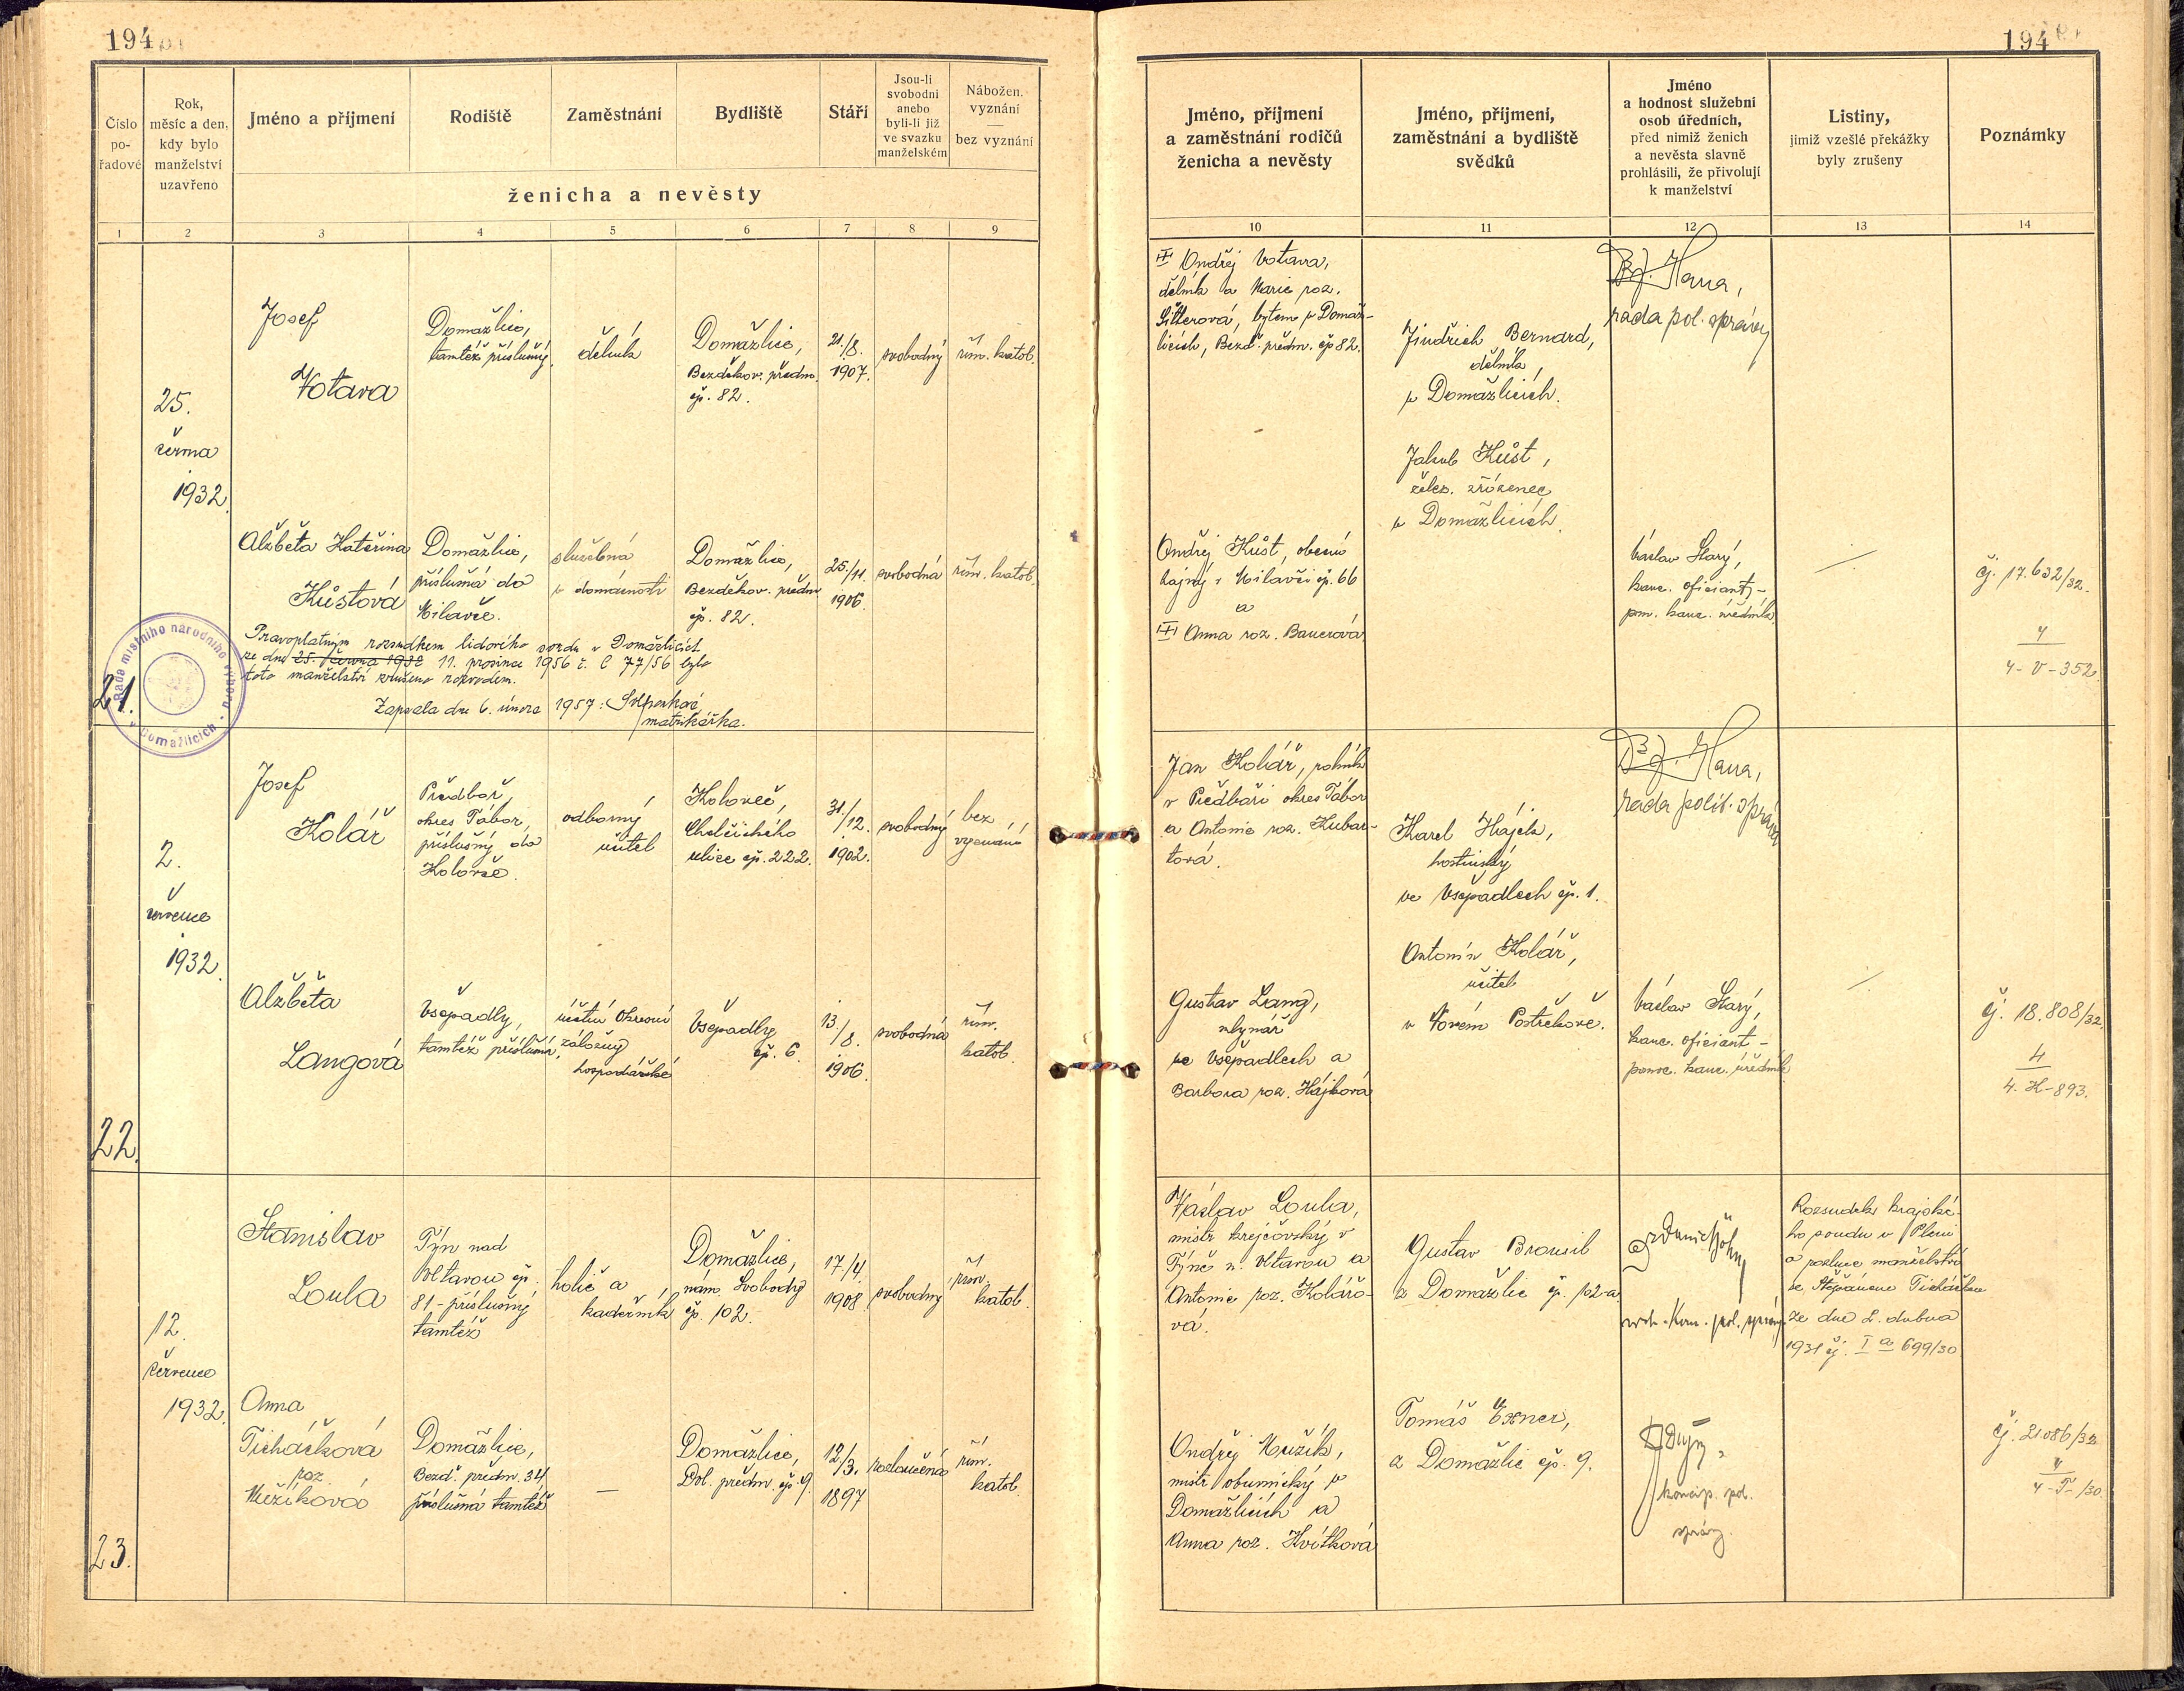 194
Číslo
po-
řadové
Rok,
měsíc a den,
kdy bylo
manželství
uzavřeno
Jméno a příjmení
Rodiště
Zaměstnání
Bydliště
Stáří
Jsou-li
svobodni
anebo
byli-li již
ve svazku
manželském
Nábožen.
vyznání
bez vyznání
ženicha a nevěsty
1
2
3
4
5
6
7
8
9
25.
června
1932.
Josef
Votava
Domažlice,
tamtéž příslušný.
dělník
Domažlice,
Bezděkov. předm.
čp. 82.
21./8.
1907.
svobodný
řím. katol.
Alžběta Kateřina
Kůstová
Domažlice,
příslušná do
Milavče.
služebná
v domácnosti
Domažlice,
Bezděkov. předm.
čp. 82.
25./11.
1906.
svobodná
řím. katol.
Pravoplatným rozsudkem lidového soudu v Domažlicích
ze dne 25. června 1932 11. prosince 1956 č. C 77/56 bylo
toto manželství zrušeno rozvodem.
Zapsala dne 6. února 1957:
matrikářka.
Rada místního národního výboru
v Domažlicích
21.
2.
července
1932.
Josef
Kolář
Předboř,
okres Tábor,
příslušný do
Kolovče.
odborný
učitel
Koloveč,
Chelčického
ulice čp. 222.
31./12.
1902.
svobodný
bez
vyznání
Alžběta
Langová
Všepadly,
tamtéž příslušná.
účetní Okresní
záložny
hospodářské
Všepadly
čp. 6.
13./8.
1906.
svobodná
řím.
katol.
22.
12.
července
1932.
Stanislav
Loula
Týn nad
Vltavou čp.
81 - příslušný
tamtéž
holič a
kadeřník
Domažlice,
nám. Svobody
čp. 102.
17./4.
1908.
svobodný
řím.
katol.
Anna
Ticháčková
roz.
Mužíková
Domažlice,
Bezd. předm. 34
příslušná tamtéž
—
Domažlice,
Dol. předm. čp 9.
12/3.
1897
rozloučená
řím.
katol.
23.
194
Jméno, příjmení
a zaměstnání rodičů
ženicha a nevěsty
Jméno, příjmení,
zaměstnání a bydliště
svědků
Jméno
a hodnost služební
osob úředních,
před nimiž ženich
a nevěsta slavně
prohlásili, že přivolují
k manželství
Listiny,
jimiž vzešlé překážky
byly zrušeny
Poznámky
10
11
12
13
14
Ondřej Votava,
dělník a Marie roz.
bytem v Domaž-
licích, Bezd. předm. čp 82.
Jindřich Bernard,
dělník,
v Domažlicích.
Jakub Kůst,
želez. zřízenec
v Domažlicích.
Hana,
rada pol. správy
Ondřej Kůst, obecní
hajný v Milavči čp. 66
a
Anna roz. Bauerová
Václav Starý,
kanc. oficiant, -
pom. kanc. úředník.
čj. 17.632/32.
4
4-V-352.
Jan Kolář, rolník
v Předboři okres Tábor
a Antonie roz. Kubar-
tová.
Karel Hájek,
hostinský
ve Všepadlech čp. 1.
Antonín Kolář,
učitel
v Novém Postřekově.
Hana,
rada polit. správy
Gustav Lang,
mlynář
ve Všepadlech a
Barbora roz. Hájková
Václav Starý,
kanc. oficiant -
pomoc. kanc. úředník
čj. 18.808/32.
4
4. K-893.
Václav Loula,
mistr krejčovský v
Týně n. Vltavou a
Antonie roz. Kolářo-
vá.
Gustav Brousil
z Domažlic čp. 102-a
vrch. kom. pol. správy
Rozsudek krajské-
ho soudu v Plzni
o rozluce manželství
se Štěpánem Ticháčkem
ze dne 2. dubna
1931 čj. I a 699/30
Ondřej Mužík,
mistr obuvnický v
Domažlicích a
Anna roz. Kvítková
Tomáš Exner,
z Domažlic čp. 9.
koncip. pol.
správy.
čj. 21.086/32
4
4-T-/30.